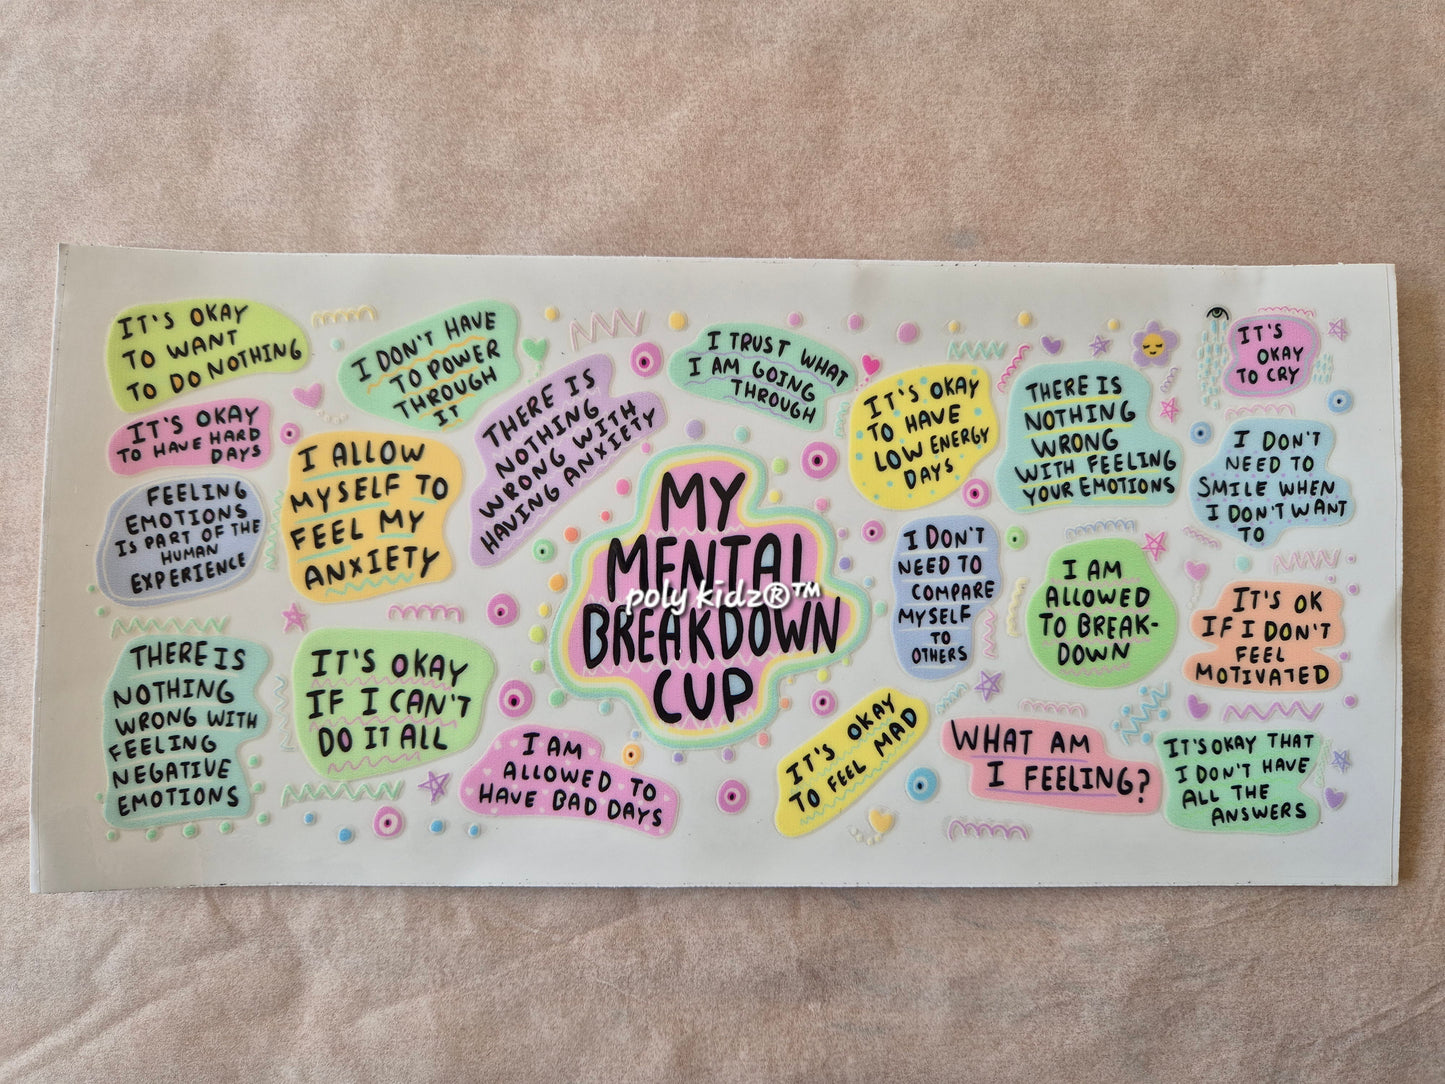 IT'S OKAY
TO WANT
TO DO NOTHING
I DON'T HAVE
TO POWER
THROUGH
IT
THERE IS
NOTHING
WRONG WITH
HAVING ANXIETY
I TRUST WHAT
I AM GOING
THROUGH
IT'S OKAY
TO HAVE
LOW ENERGY
DAYS
THERE IS
NOTHING
WRONG
WITH FEELING
YOUR EMOTIONS
IT'S
OKAY
TO CRY
IT'S OKAY
TO HAVE HARD
DAYS
I ALLOW
MYSELF TO
FEEL MY
ANXIETY
I DON'T
NEED TO
SMILE WHEN
I DON'T WANT
TO
FEELING
EMOTIONS
IS PART OF THE
HUMAN
EXPERIENCE
MY
MENTAL
BREAKDOWN
CUP
poly kidz®™
I DON'T
NEED TO
COMPARE
MYSELF
TO
OTHERS
I AM
ALLOWED
TO BREAK-
DOWN
IT'S OK
IF I DON'T
FEEL
MOTIVATED
THERE IS
NOTHING
WRONG WITH
FEELING
NEGATIVE
EMOTIONS
IT'S OKAY
IF I CAN'T
DO IT ALL
I AM
ALLOWED TO
HAVE BAD DAYS
IT'S OKAY
TO FEEL MAD
WHAT AM
I FEELING?
IT'S OKAY THAT
I DON'T HAVE
ALL THE
ANSWERS